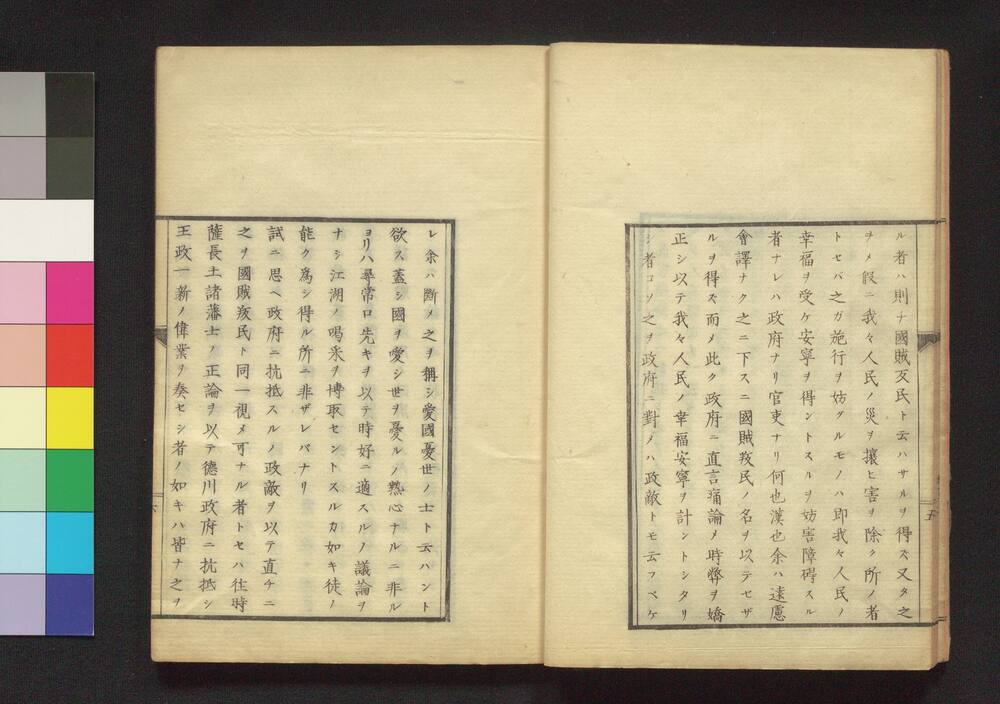 ル者ハ則ナ國賊叐民ト云ハサルヲ得ス又タ之
ヲメ假ニ我々人民ノ災ヲ攘ヒ害ヲ除ク所ノ者
トセバ之ガ施行ヲ妨グルモノハ即我々人民ノ
幸福ヲ受ケ安寧ヲ得ントスルヲ妨害障碍スル
者ナレハ政府ナリ官吏ナリ何也漢也余ハ遠慮
會譯ナク之ニ下スニ國賊叐民ノ名ヲ以テセザ
ルヲ得ズ而メ此ク政府ニ直言痛論メ時弊ヲ矯
正シ以テ我々人民ノ幸福安寧ヲ計ントシタリ
シ者コソ之ヲ政府ニ對メハ政敵トモ云フベケ
五
レ余ハ斷メ之ヲ稱シ愛國憂世ノ士ト云ハント
欲ス蓋シ國ヲ愛シ世ヲ憂ルノ熱心ナルニ非ル
ヨリハ尋常口先キヲ以テ時好ニ適スルノ議論ヲ
ナシ江湖ノ喝采ヲ博取セントスルカ如キ徒ノ
能ク爲シ得ル所ニ非ザレバナリ
試ニ思ヘ政府ニ抗抵スルノ政敵ヲ以テ直チニ
之ヲ國賊叐民ト同一視メ可ナル者トセハ往時
薩長土諸藩士ノ正論ヲ以テ德川政府ニ抗抵シ
王政一新ノ偉業ヲ奏セシ者ノ如キハ皆ナ之ヲ